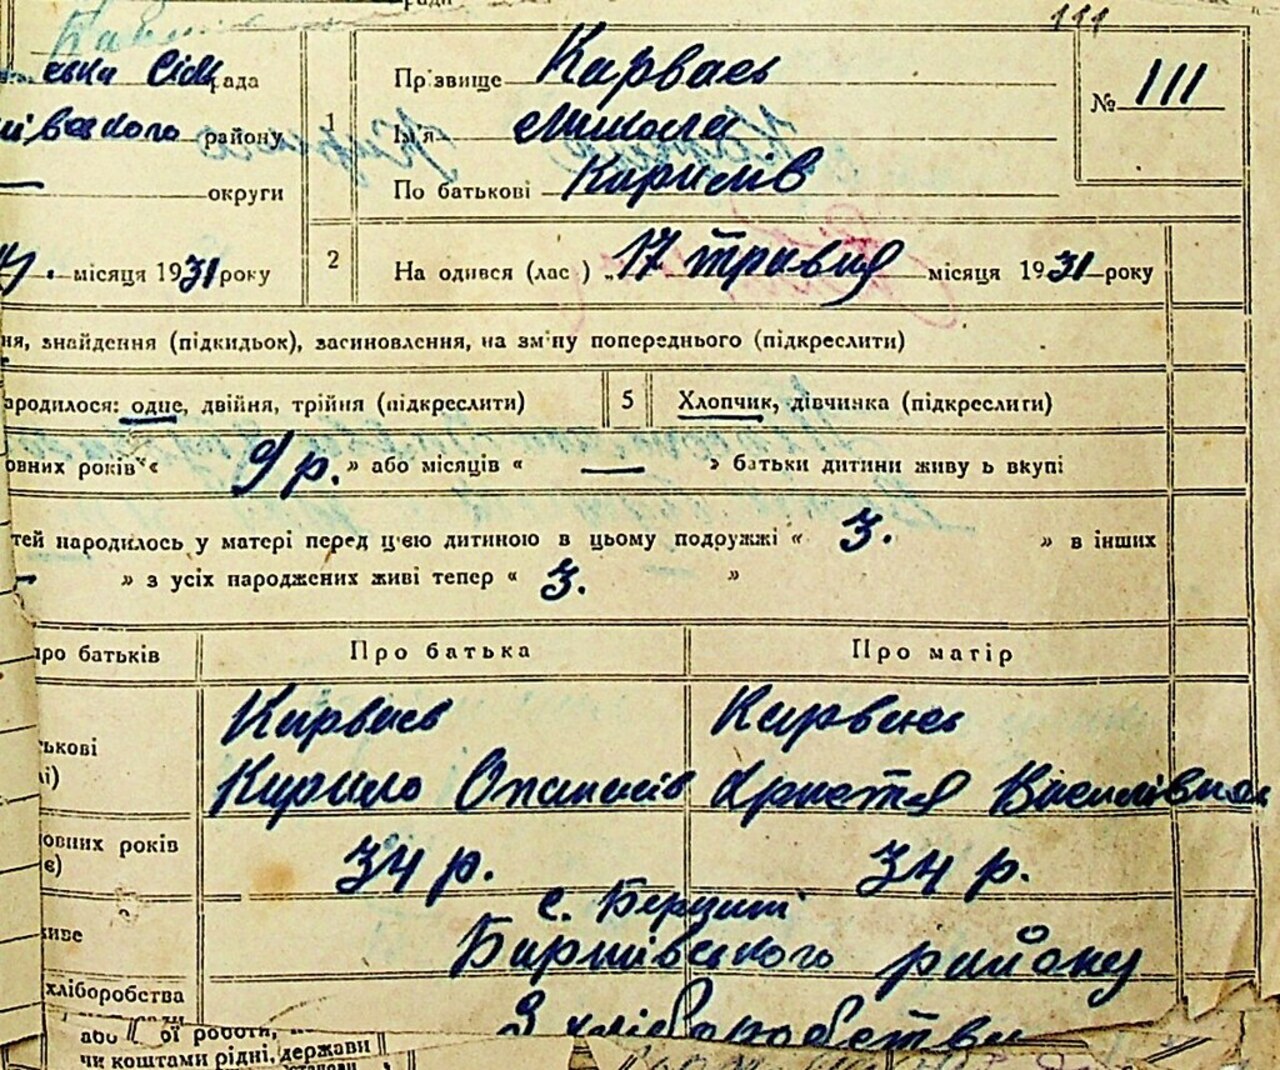 111
ська Сіль рада
Прізвище Карвась
№ 111
івського району
1
Ім'я Микола
округи
По батькові Кирилів
місяця 1931 року
2
На одився (лас ) „17 травня місяця 1931 року
ня, знайдення (підкидьок), засиновлення, на зміну попереднього (підкреслити)
ародилося: одне, двійня, трійня (підкреслити)
5
Хлопчик, дівчинка (підкреслити)
овних років « 9 р. » або місяців « — » батьки дитини живу ь вкупі
тей народилось у матері перед цією дитиною в цьому подружжі « 3. » в інших
» з усіх народжених живі тепер « 3. »
про батьків
Про батька
Про матір
ькові
і)
Карвась
Кирило Опанасів
Карвась
Христя Василівна
овних років
є)
34 р.
34 р.
живе
с. Берзиті
Баршівського району
хліборобства
З хліборобства
або ої роботи,
чи коштами рідні, держави